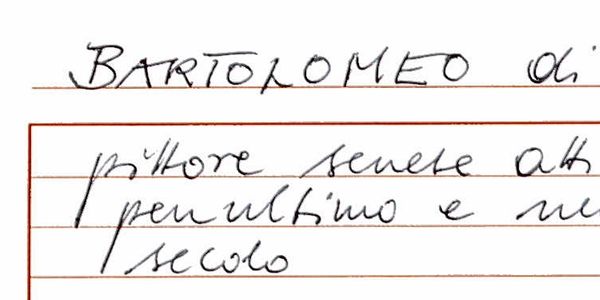 BARTOLOMEO di
pittore senese atti
penultimo e ne
secolo